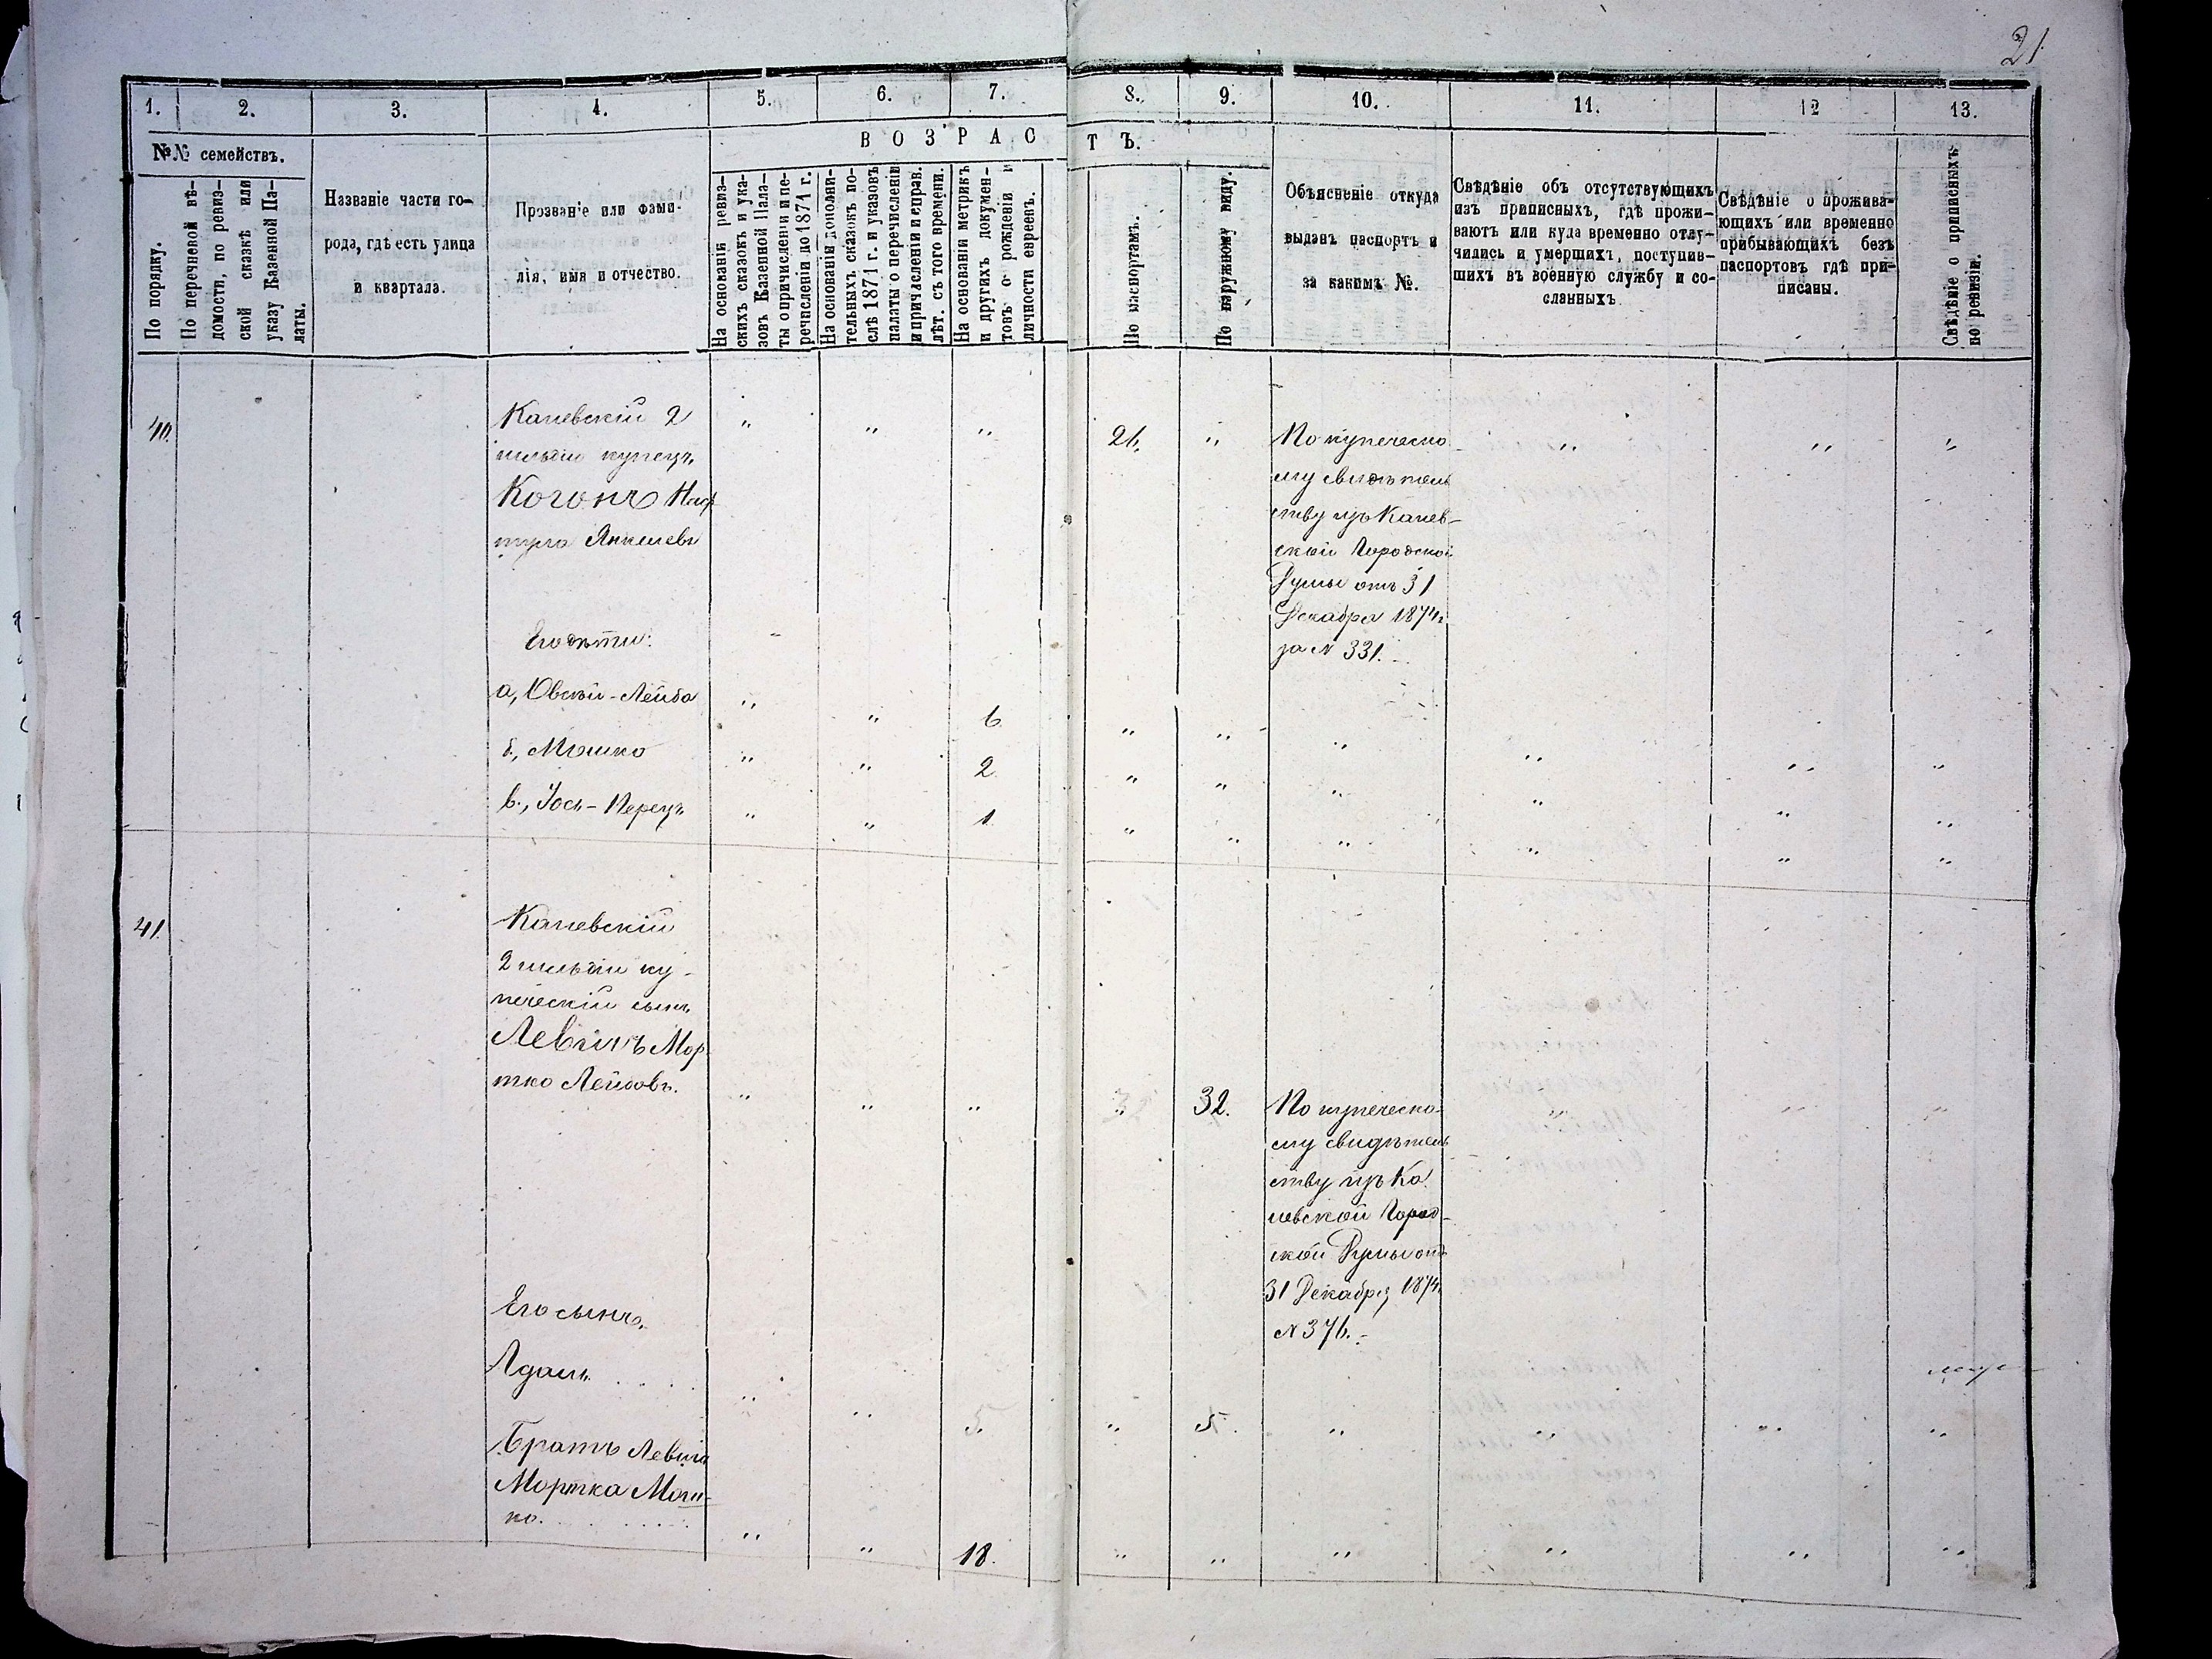 21
1.
2.
3.
4.
5.
6.
7.
8.
9.
10.
11.
12
13.
№№ семействъ.
ВОЗРАСТЪ.
По порядку.
По перечневой вѣ-
домости, по ревиз-
ской сказкѣ или
указу Казенной Па-
латы.
Названіе части го-
рода, гдѣ есть улица
и квартала.
Прозваніе или фами-
лія, имя и отчество.
На основаніи ревиз-
скихъ сказокъ и ука-
зовъ Казенной Пала-
ты о причисленіи и пе-
речисленіи до 1871 г.
На основаніи дополни-
тельныхъ сказокъ по-
слѣ 1871 г. и указовъ
палаты о перечисленіи
и причисленіи и справ.
лѣт. съ того времени.
На основаніи метрикъ
и другихъ докумен-
товъ о рожденіи и
личности евреевъ.
По паспортамъ.
По наружному виду.
Объясненіе откуда
выданъ паспортъ и
за какимъ №.
Свѣдѣніе объ отсутствующихъ
изъ приписныхъ, гдѣ прожи-
ваютъ или куда временно отлу-
чились и умершихъ, поступив-
шихъ въ военную службу и со-
сланныхъ
Свѣдѣніе о прожива-
ющихъ или временно
прибывающихъ безъ
паспортовъ гдѣ при-
писаны.
Свѣдѣніе о приписныхъ
по ревизіи.
40.
Каневскій 2
гильдіи купецъ
Когонъ Наф
тула Янкелевъ
" " " 26. " " " "
По купеческо
му свидѣтель
ству изъ Канев-
ской Городской
Думы отъ 31
Декабря 1874г.
за № 331.
Его дѣти:
а, Овсей-Лейба " " 6 " " " " " "
б, Мошко " " 2. " " " " " "
в., Іось-Перецъ " " 1 " " " " " "
41.
Каневскій
2 гильдіи ку-
печескій сынъ
Левинъ Мор
тко Лейбовъ. " " " " 32. " " "
По купеческо-
му свидѣтель
ству изъ Ка
невской Город-
ской Думы отъ
31 Декабря 1874
№ 376.-
Его сынъ,
Адамъ . . . . " " 5. " 5. " " " "
Братъ Левина
Мортка Мош-
ко. . . . . . . " " 18. " " " " " "